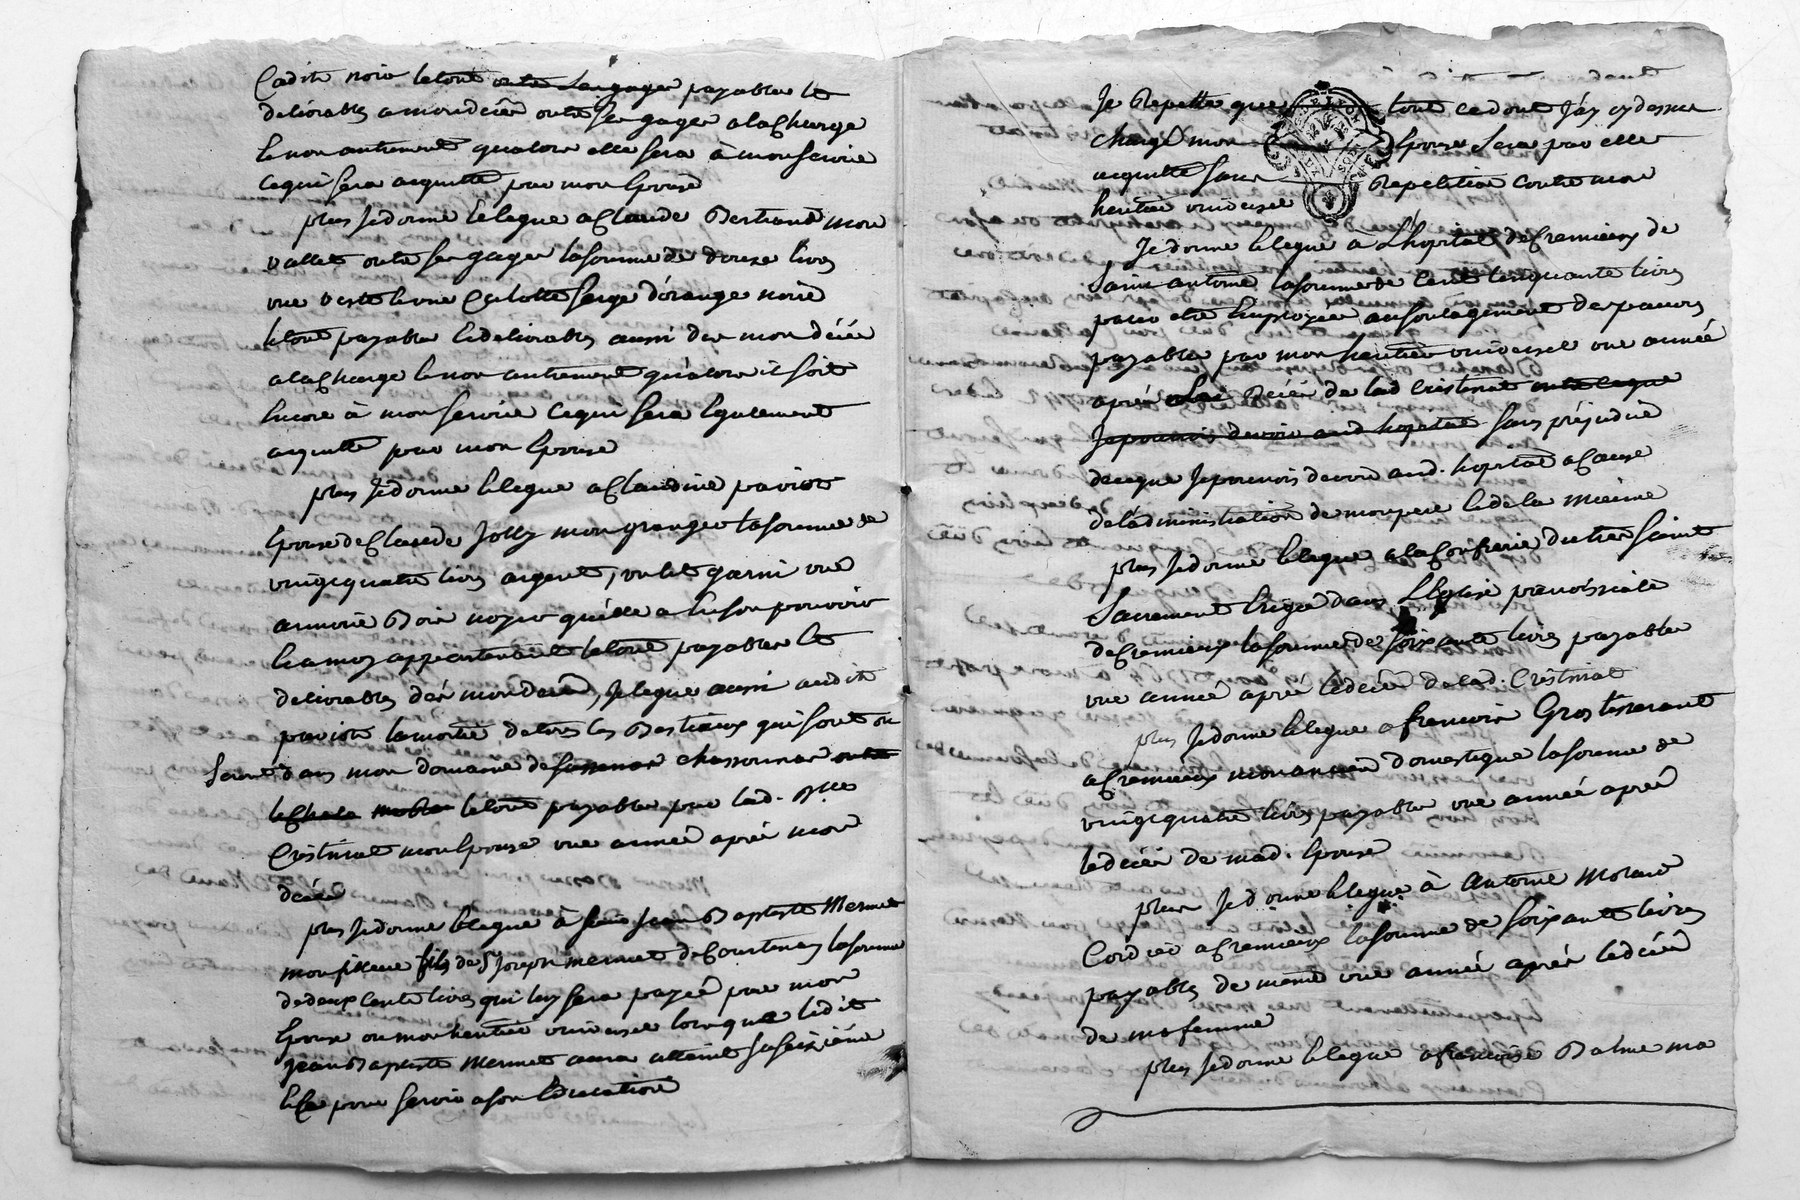 Cadit noir le tout payables et
delivrables a mon décès outre ses gages a la charge
et non autrement qualors elle sera à mon service
ce qui sera acquitté par mon Epouse
plus Je donne et legue a Claude Bertrand mon
vallet outre ses gages la somme de douze livres
une veste et une Culotte serge d'orange noire
le tout payables et delivrables aussi des mon décés
a la Charge et non autrement qu'alors il soit
Encore à mon service ce qui sera Egalement
acquitté par mon Epouse
plus Je donne et legue a Claudine paviot
Epouse de Claude Jolly mon granger la somme de
vingt quatre livres argent, un lit garni une
armoire Bois noyer qu'elle a En son pouvoir
Et a moy appartenant le tout payables et
delivrables dés mon décés, Je legue aussi audit
paviot la moitié de tous les Bestiaux qui sont ou
seront dans mon domaine de chassonnar
le tout payable par lad. Dlle
Cristinat mon Epouse une année aprés mon
décés
plus Je donne et legue à Jean Baptiste Mermet
mon filleul fils de Sr Joseph mermet de Courtenay la somme
de deux cents livres qui luy sera payée par mon
Epouse ou mon heritier universel lorsque ledit
Jean Baptiste Mermet aura atteint sa seizième
pour servir a son Education
Je Repette que tout ce dont J'ay cy dessus
chargé mon Epouse sera par elle
acquitté sans Repetition contre mon
heritier universel
Je donne et legue à L'hopital de Cremieux de
Saint antoine la somme de Cent Cinquante livres
pour etre Employée au soulagement des pauvres
payable par mon heritier universel une année
aprés le décés de lad Cristinat outre ce que
Je pourrois devoir aud hopital sans préjudice
de ce que Je pourrois devoir aud. hopital a Cause
de l'administration de mon pere et de la mienne
plus Je donne et legue a la Confrerie du tres Saint
Sacrement Erigée dans L'Eglise paroissiale
de Cremieux la somme de soixante livres payable
une année aprés le décés de lad. Cristinat
plus Je donne et legue a francois Gros tisserant
a Cremieux mon ancien domestique la somme de
vingt quatre livres payable une année aprés
le décés de mad. Epouse
plus Je donne et legue à Antoine Morand
Cordier a Cremieux la somme de soixante livres
payables de meme une année aprés le décés
de ma femme
plus Je donne et legue a francoise Balme ma